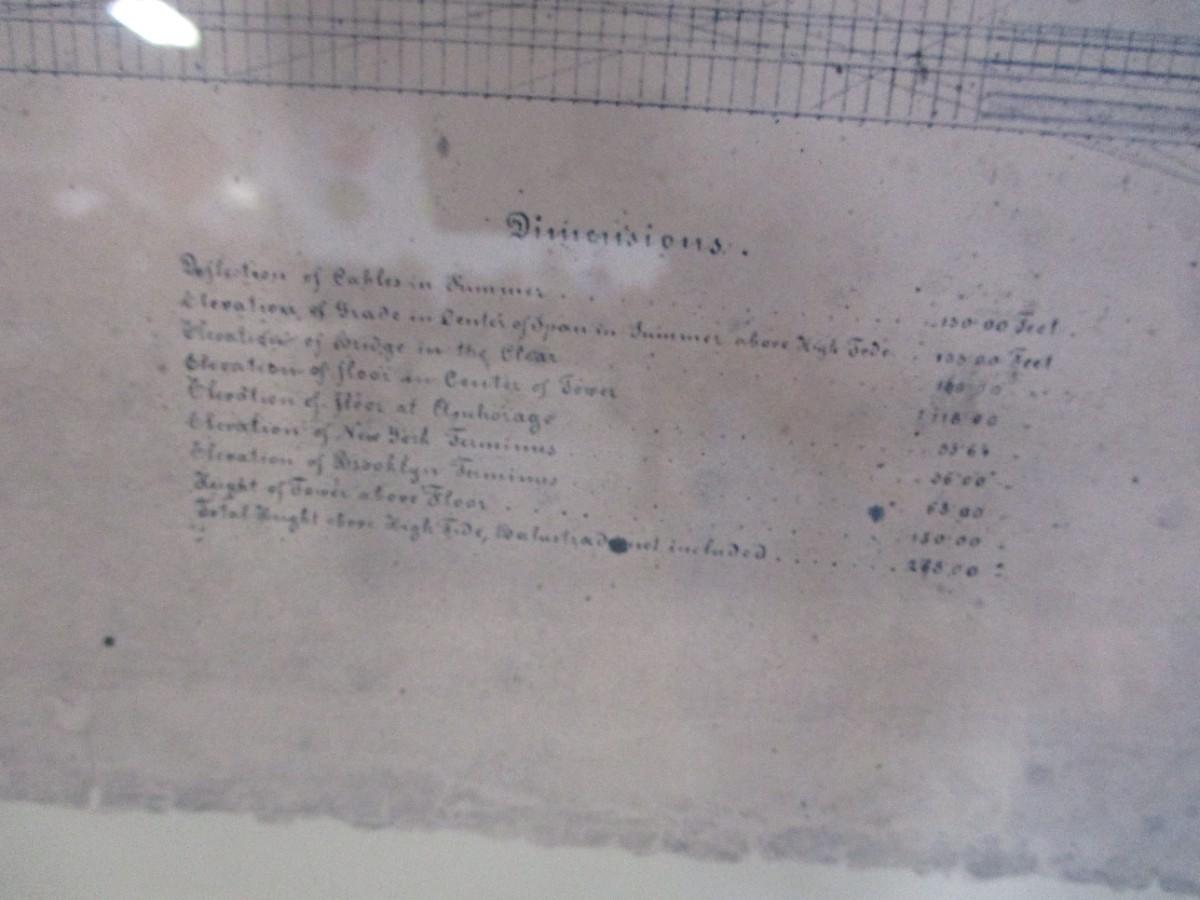 Dimensions.
Deflection of Cables in Summer . . . . 130.00 Feet
Elevation of Grade in Center of Span in Summer above High Tide . 135.00 Feet
Elevation of Bridge in the Clear
Elevation of floor in Center of Tower 118.00
Elevation of floor at Anchorage
Elevation of New York Terminus
Elevation of Brooklyn Terminus
Height of Tower above Floor . . . . 150.00
Total Height above High Tide, Balustrade not included . . . . . . . 268.00 "